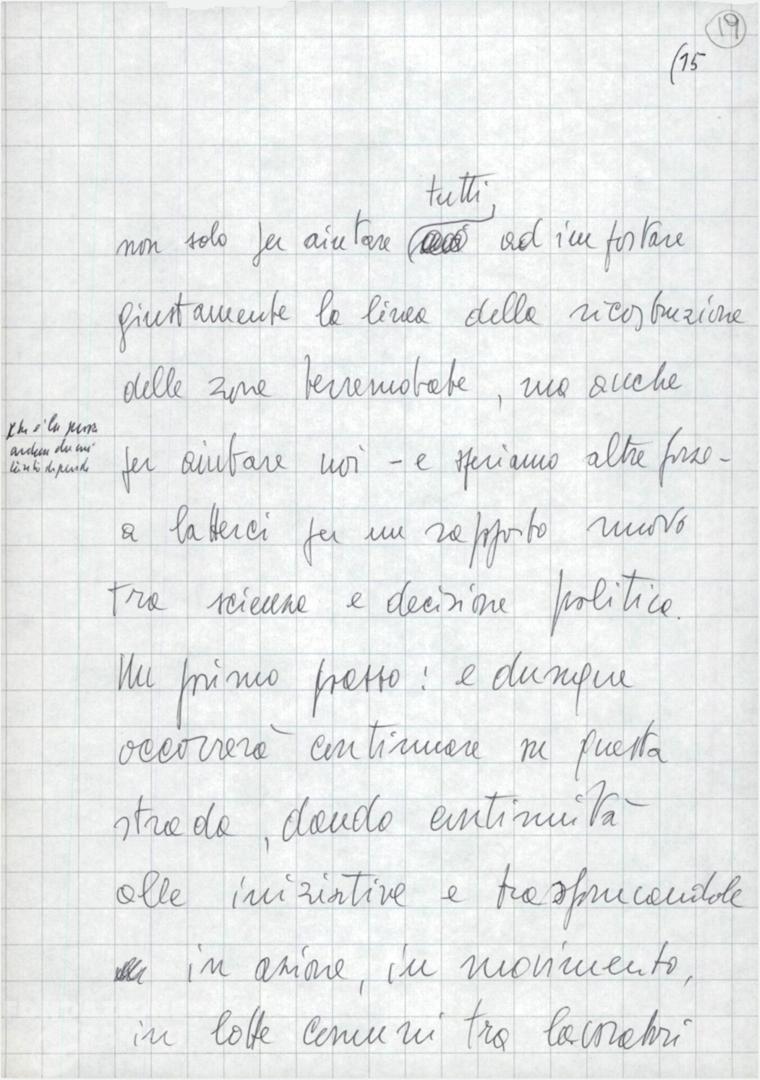 19
(15
tutti,
non solo per aiutare ad impostare
giustamente la linea della ricostruzione
delle zone terremotate, ma anche
per aiutare noi - e speriamo altre forze -
a batterci per un rapporto nuovo
tra scienza e decisione politica.
Un primo passo: e dunque
occorrerà continuare su questa
strada, dando continuità
alle iniziative e trasformandole
in azione, in movimento,
in lotte comuni tra lavoratori